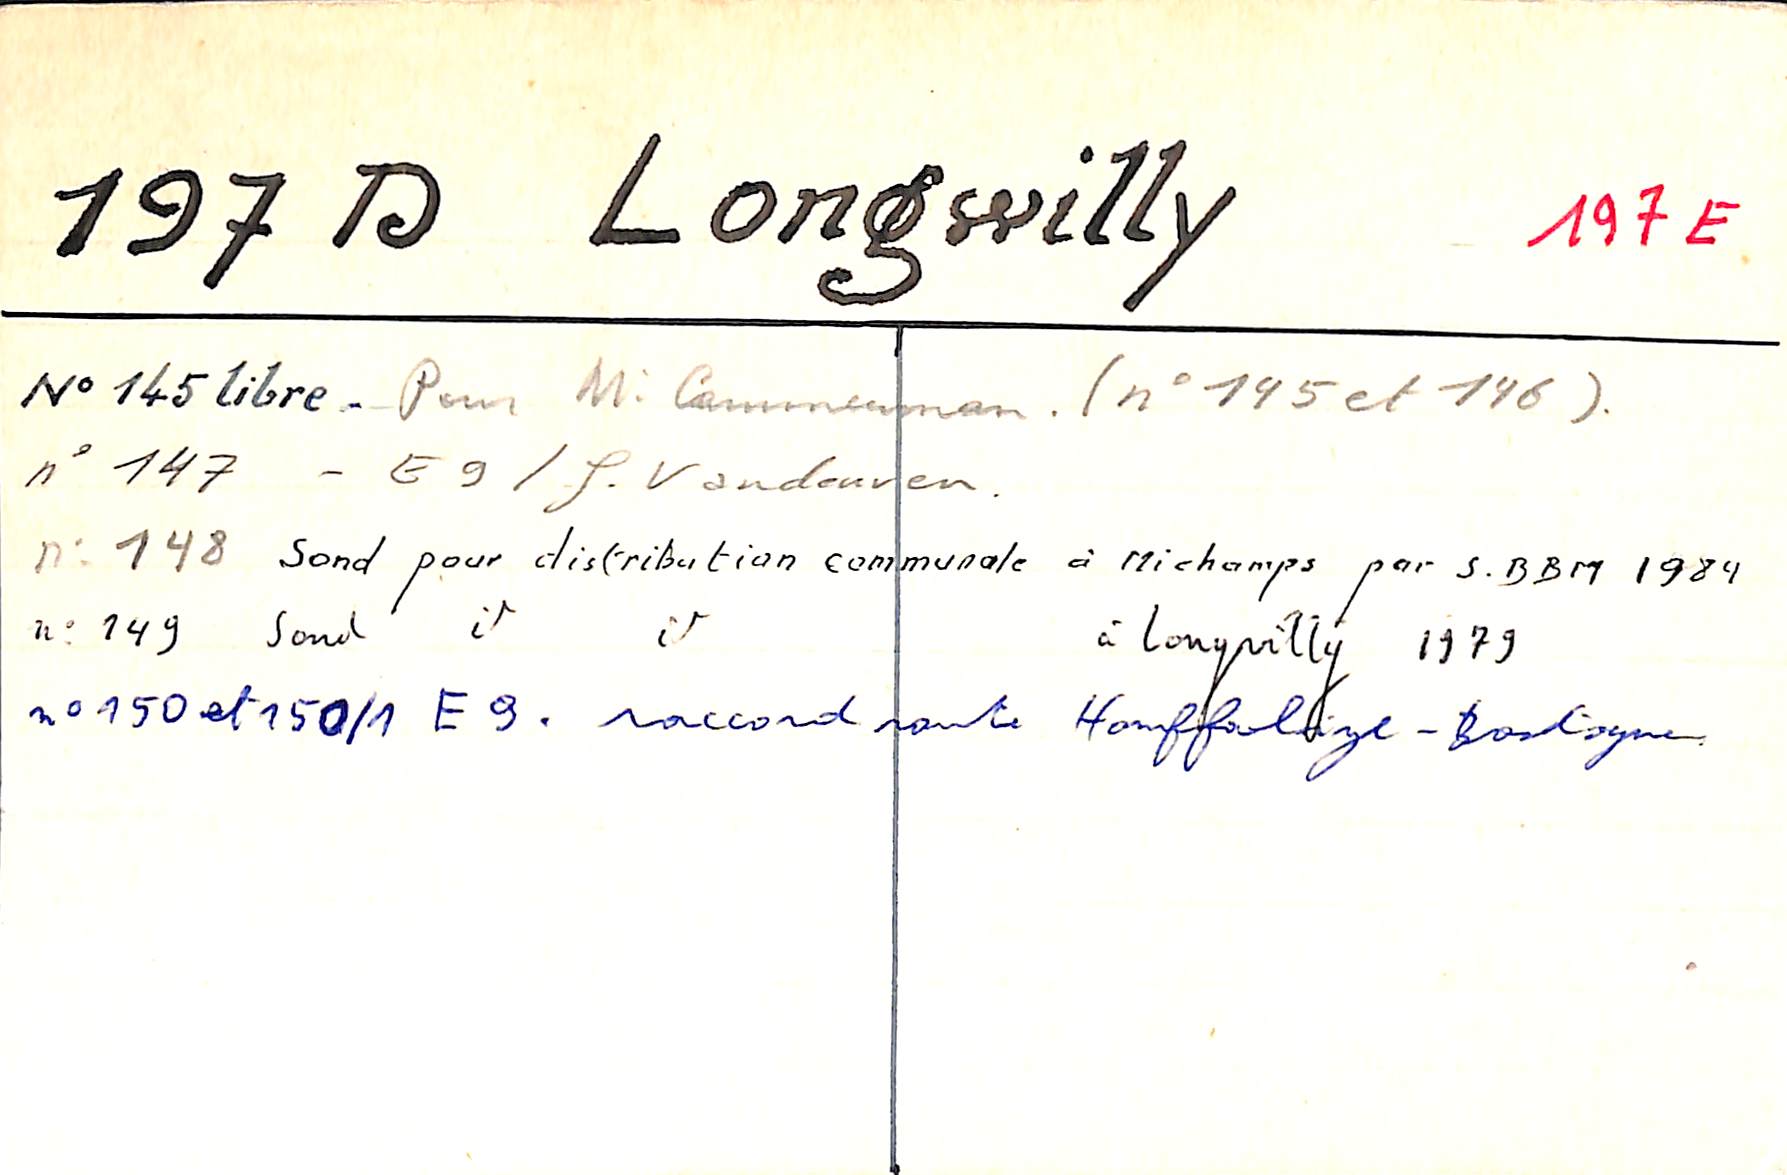 197 D Longsvilly 197 E
N° 145 libre - Pour Mr Cammerman. (n° 145 et 146).
n° 147 - E 9 / J. Vandenven.
n: 148 Sond pour distribution communale à Michamps par S.BBM 1984
n: 149 Sond id id à Longvilly 1979
n° 150 et 150/1 E 9. raccord route Houffalize - Bastogne